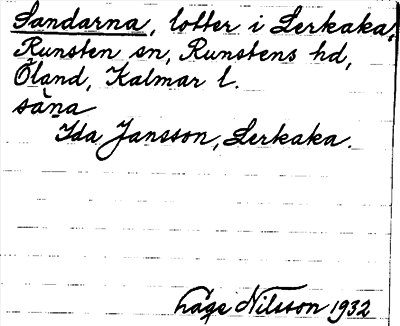 Sandarna, lotter i Lerkaka,
Runsten sn, Runstens hd,
Öland, Kalmar l.
såna
Ida Jansson, Lerkaka.
Låge Nilsson 1932